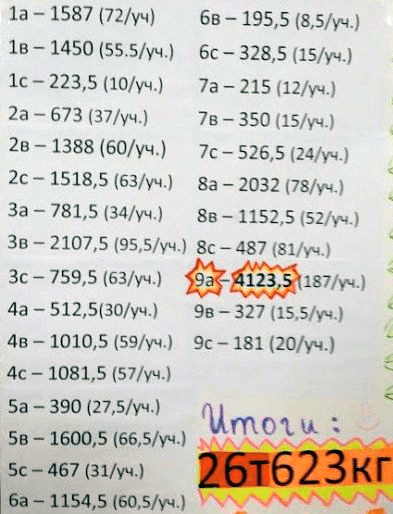 1а – 1587 (72/уч)
1в – 1450 (55.5/уч.)
1с – 223,5 (10/уч.)
2а – 673 (37/уч.)
2в – 1388 (60/уч.)
2с – 1518,5 (63/уч.)
3а – 781,5 (34/уч.)
3в – 2107,5 (95,5/уч.)
3с – 759,5 (63/уч.)
4а – 512,5(30/уч.)
4в – 1010,5 (59/уч.)
4с – 1081,5 (57/уч.)
5а – 390 (27,5/уч.)
5в – 1600,5 (66,5/уч.)
5с – 467 (31/уч.)
6а – 1154,5 (60,5/уч.)
6в – 195,5 (8,5/уч.)
6с – 328,5 (15/уч.)
7а – 215 (12/уч.)
7в – 350 (15/уч.)
7с – 526,5 (24/уч.)
8а – 2032 (78/уч.)
8в – 1152,5 (52/уч.)
8с – 487 (81/уч.)
9а – 4123,5 (187/уч.)
9в – 327 (15,5/уч.)
9с – 181 (20/уч.)
Итоги :
26т623кг